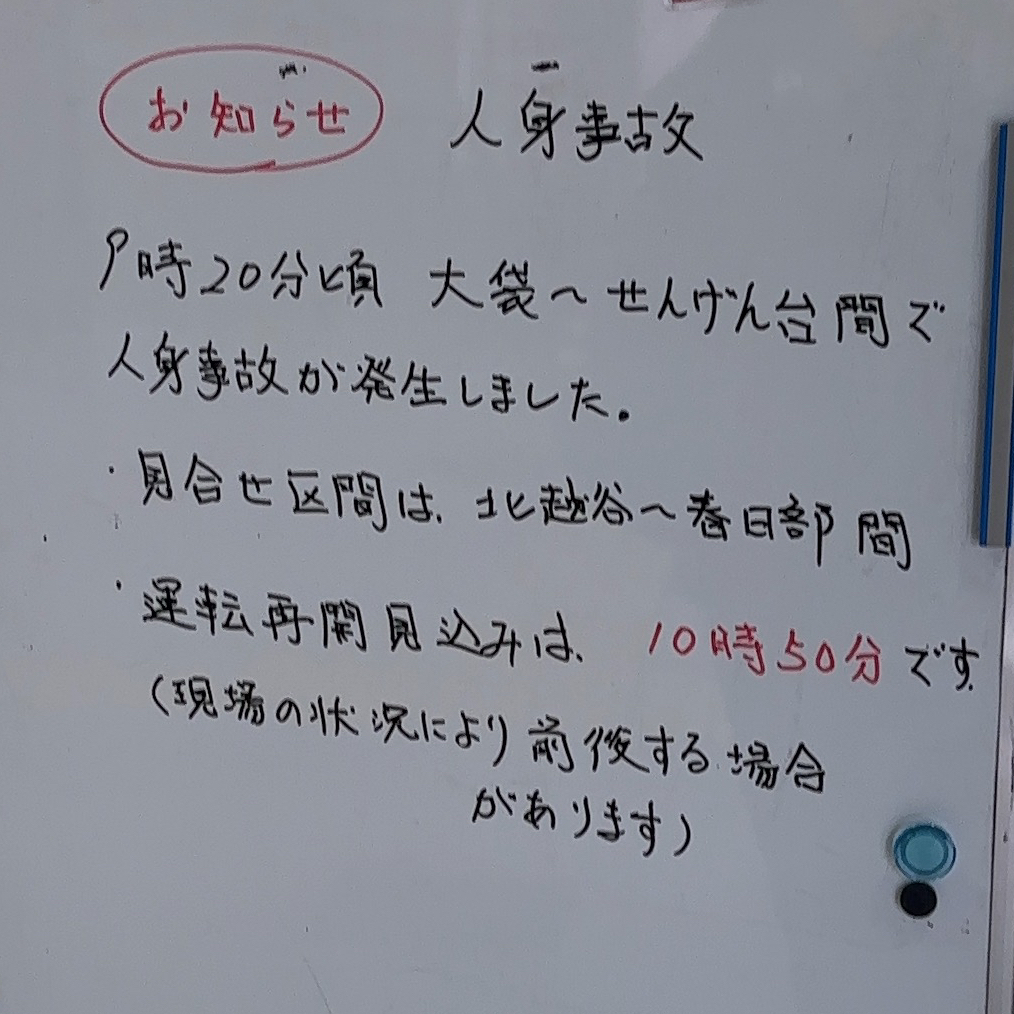 お知らせ 人身事故
9時20分頃 大袋~せんげん台間で
人身事故が発生しました。
・見合せ区間は、北越谷~春日部間
・運転再開見込みは、10時50分です。
(現場の状況により前後する場合
があります)